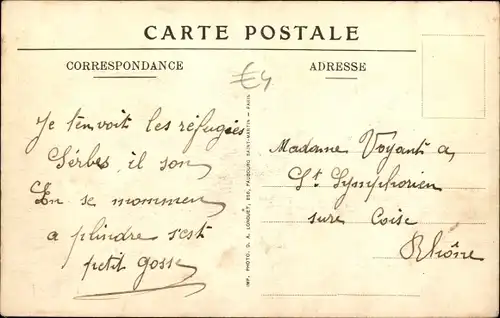 CARTE POSTALE
CORRESPONDANCE
ADRESSE
€4
Je t'envoit les réfugiés
Serbes il son
En se mommen
a plindre s'est
petit gosse
IMP. PHOTO. D. A. LONGUET, 250, FAUBOURG SAINT-MARTIN – PARIS
Madame Voyanti a
St Symphorien
sure Coise
Rhône